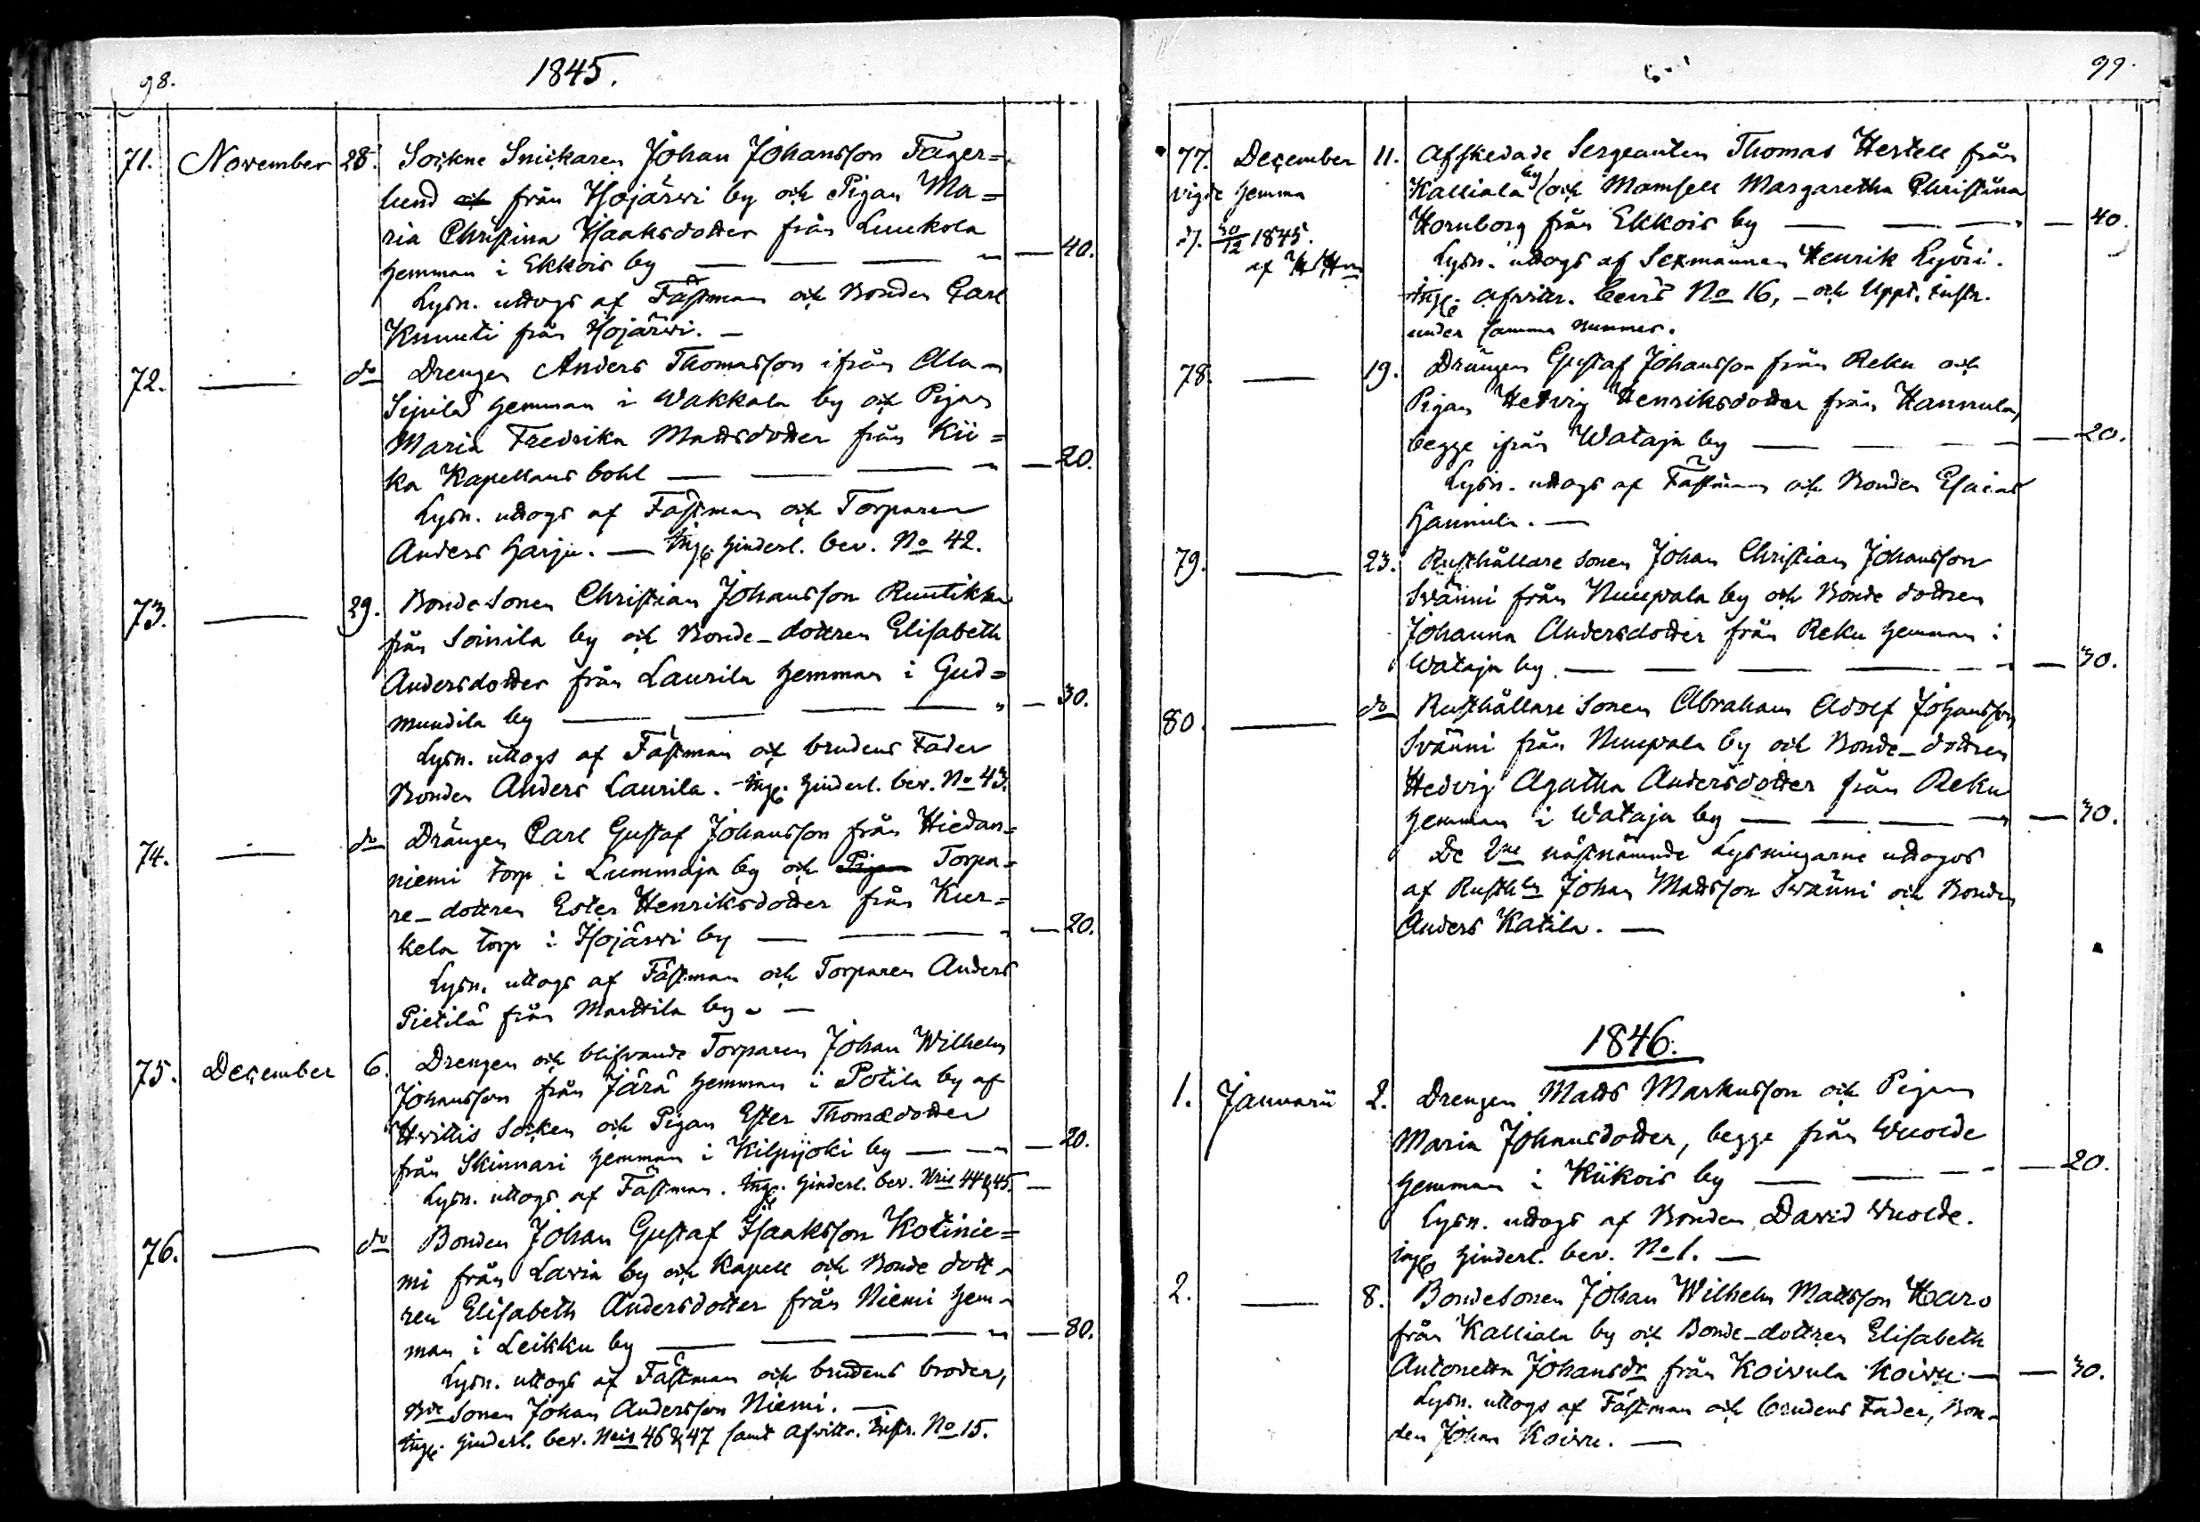 98.
1845.
71. November 28. Sockne Snickaren Johan Johansson Fager=
lund och från Isojärvi by och Pigan Ma=
ria Christina Isaaksdotter från Luukola
hemman i Ekkois by — — — " — 40.
Lysn. uttogs af Fästman och Bonden Carl
Knuuti från Isojärvi. —
72. — do Drengen Anders Thomasson ifrån Ala-
Sipilä hemman i Wakkala by och Pigan
Maria Fredrika Mattsdotter från Kii=
ka Kapellans bohl — — — " — 20.
Lysn. uttogs af Fästman och Torparen
Anders Harju. — Ing. hinderl. bev. No 42.
73. — 29. Bondesonen Christian Johansson Ruutikka
från Soinila by och Bonde-dottren Elisabeth
Andersdotter från Laurila hemman i Gud=
mundila by — — — — " — 30.
Lysn. uttogs af Fästman och brudens Fader
Bonden Anders Laurila. - Ing. hinderl. bev. No 43.
74. — do Drängen Carl Gustaf Johansson från Hiedan=
niemi torp i Lummaja by och Pigan Torpa=
re-dottren Ester Henriksdotter från Kur=
kela torp i Isojärvi by — — — " — 20.
Lysn. uttogs af Fästman och Torparen Anders
Pietilä från Marttila by. —
75. December 6. Drengen och blifvande Torparen Johan Wilhelm
Johansson från Järä hemman i Potila by af
Hvittis Socken och Pigan Ester Thomædotter
från Skinnari hemman i Kilpijoki by — — — 20.
Lysn. uttogs af Fästman. Ing. hinderl. bev. Nris 44 & 45. —
76. — do Bonden Johan Gustaf Isaaksson Kotinie=
mi från Lavia by och Kapell och Bonde dott-
ren Elisabeth Andersdotter från Niemi hem-
man i Leikku by — — — — " — 80.
Lysn. uttogs af Fästman och brudens broder,
Bde Sonen Johan Andersson Niemi. —
Ing. hinderl. bev. Nris 46 & 47 samt afvittr. Instr. No 15.
99.
77. December 11. Afskedade Sergeanten Thomas Hertell från
vigde hemma
Kalliala by och Mamsell Margaretha Christina
d. 30/12 1845.
Hornborg från Ekkois by — — — — 40.
af
Lysn. uttogs af Sexmannen Henrik Lyöri.
Ing. afvittr. bevis No 16, - och Uppt. instr.
under samma nummer.
78. — 19. Drängen Gustaf Johansson från Reku och
Pigan Hedvig Henriksdotter från Hannula,
begge ifrån Wataja by — — — — 20.
Lysn. uttogs af Fästman och Bonden Esaias
Hannula. —
79. — 23. Rusthållare sonen Johan Christian Johansson
Svänni från Nuupala by och Bonde dottren
Johanna Andersdotter från Reku hemman i
Wataja by. — — — — — 30.
80. — do Rusthållare Sonen Abraham Adolf Johansson
Svänni från Nuupala by och Bonde-dottren
Hedvig Agatha Andersdotter från Reku
hemman i Wataja by — — — — 30.
De 2ne nästnämnde Lysningarne uttogos
af Rusthln Johan Mattsson Svänni och Bonden
Anders Katila. —
1846.
1. Januarii 2. Drengen Matts Markusson och Pigan
Maria Johansdotter, begge från Wuolde
hemman i Kiikois by — — — — 20.
Lysn. uttogs af Bonden David Wuolde.
ing. hinderl. bev. No 1. —
2. — 8. Bondesonen Johan Wilhelm Mattsson Haro
från Kalliala by och Bonde-dottren Elisabeth
Antonetta Johansdr från Koivula Koivu — — 30.
Lysn. uttogs af Fästman och brudens Fader, Bon-
den Johan Koivu. —